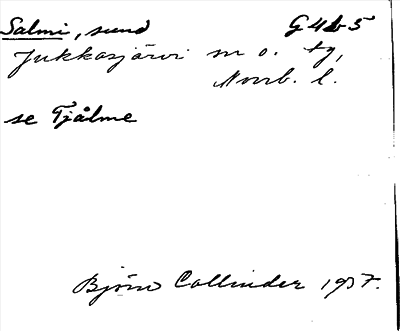 Salmi, sund G4b5
Jukkasjärvi sn o. tg,
Norrb. l.
se Tjålme
Björn Collinder 1937.